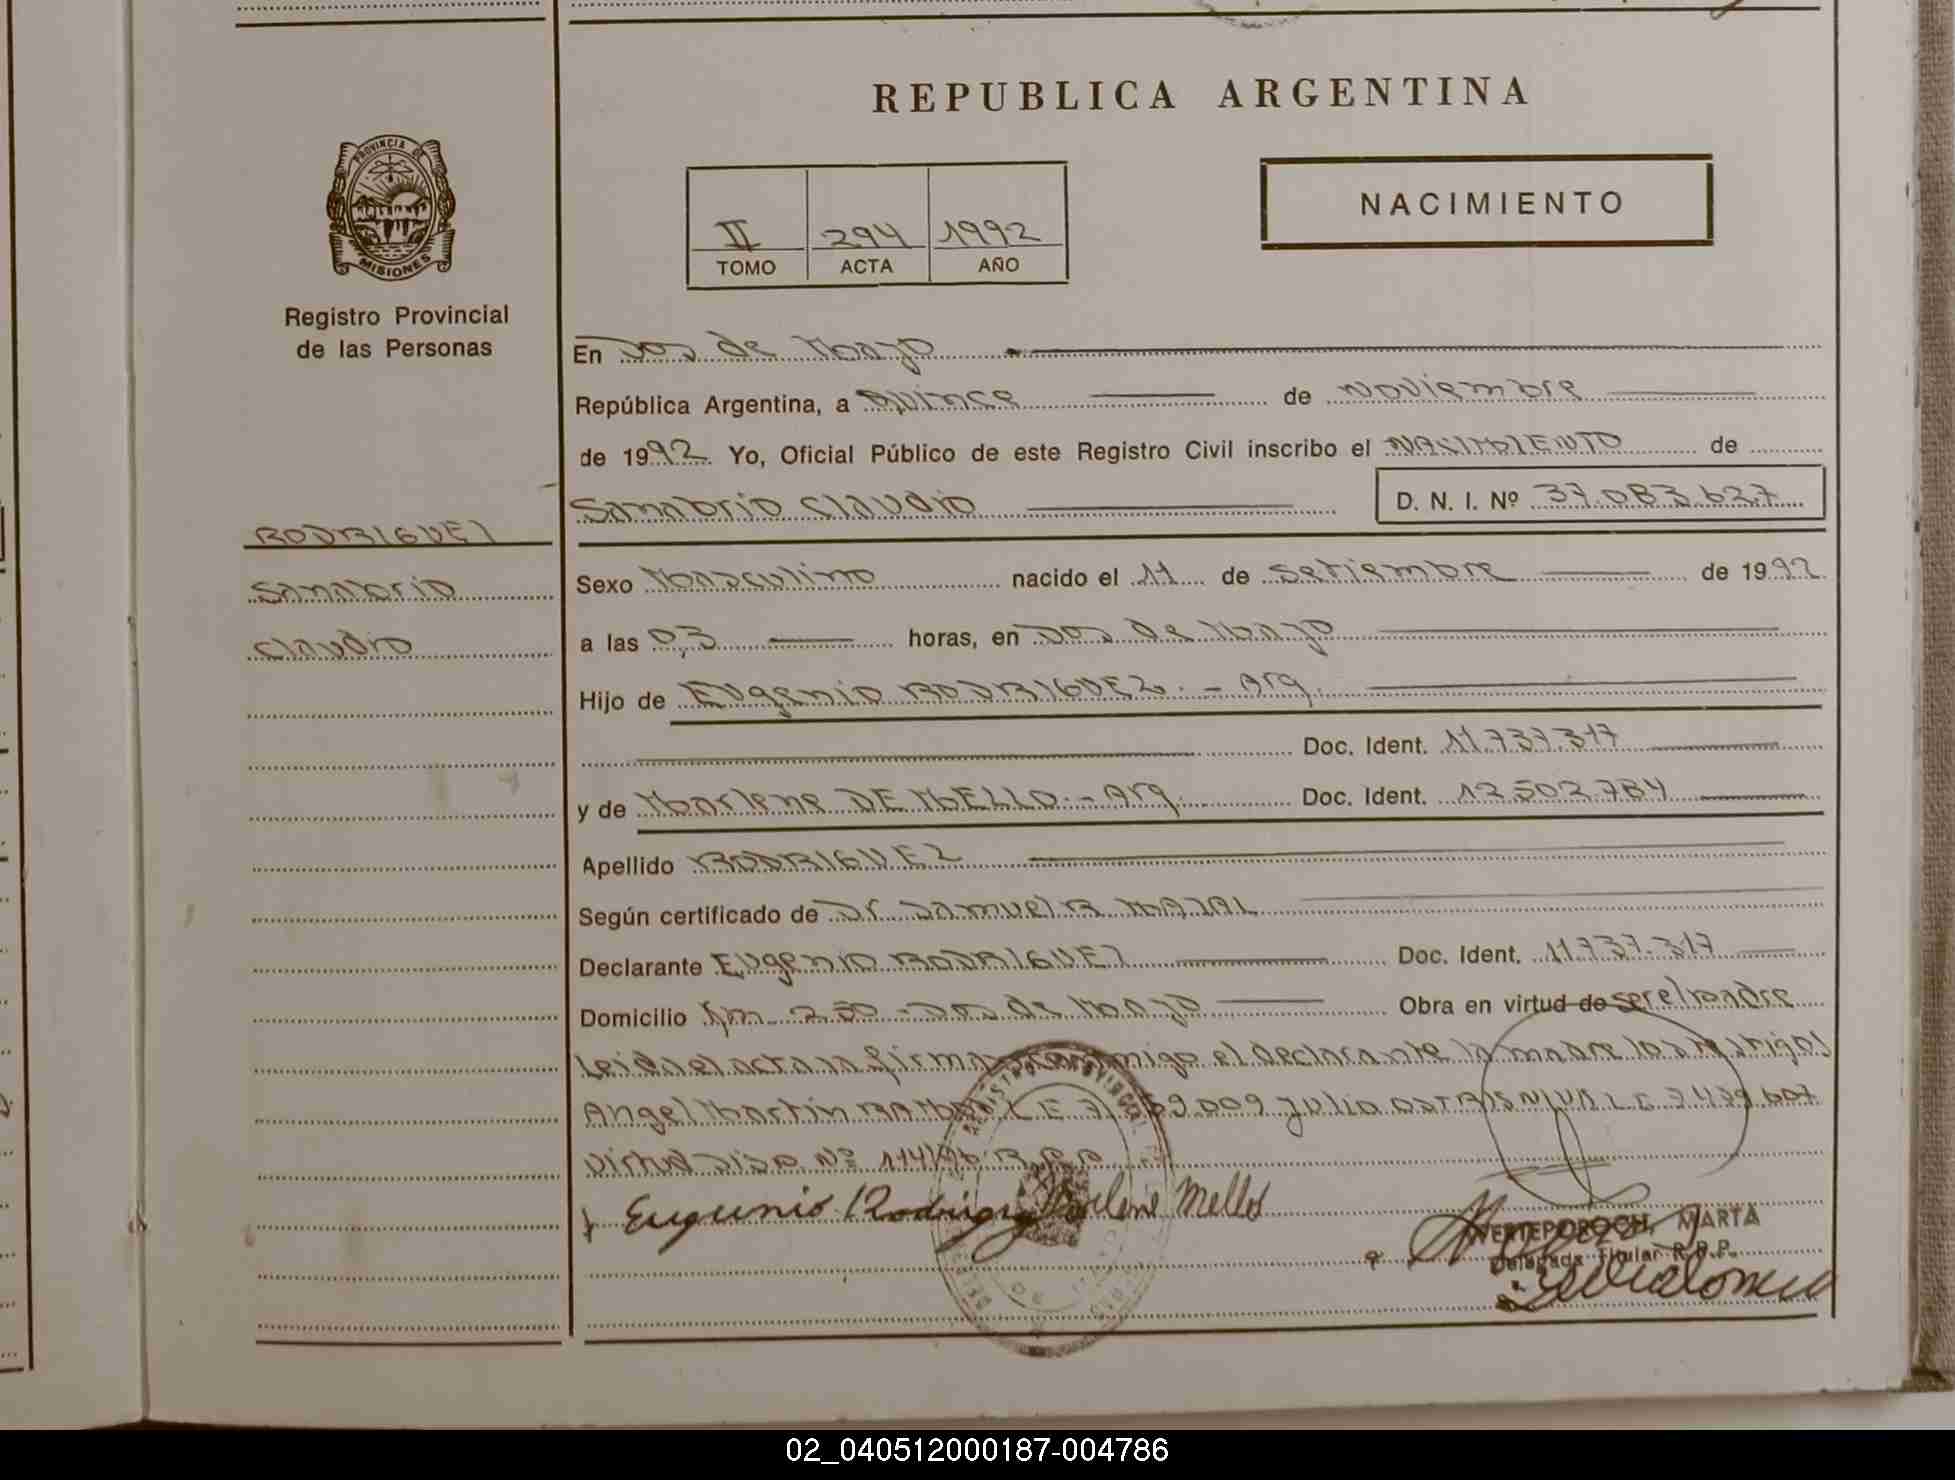 REPUBLICA ARGENTINA
PROVINCIA DE
MISIONES
Registro Provincial
de las Personas
II 294 1992
TOMO ACTA AÑO
NACIMIENTO
En Dos de Mayo
República Argentina, a Quince de Noviembre
de 1992 Yo, Oficial Público de este Registro Civil inscribo el NACIMIENTO de
Sanabrio Claudio D. N. I. Nº 37.083.627
RODRIGUEZ
Sanabrio
Claudio
Sexo Masculino nacido el 11 de Setiembre de 1992
a las 03 horas, en Dos de Mayo
Hijo de Eugenio RODRIGUEZ.- Arg.
Doc. Ident. 11.737.317
y de Marlene DE MELLO.- Arg. Doc. Ident. 12.502.784
Apellido RODRIGUEZ
Según certificado de Dr. Samuel R.
Declarante Eugenio RODRIGUEZ Doc. Ident. 11.737.317
Domicilio Km 250 - Dos de Mayo Obra en virtud de ser el padre
Leida el acta la firman conmigo el declarante la madre los testigos
Angel Martin L E 009 Julio L E
Virtud Disp. Nº R.P.P.
Eugenio Rodriguez Marlene Mello
WERTEPOROCH, MARTA
Delegada Titular R.P.P.
02_040512000187-004786